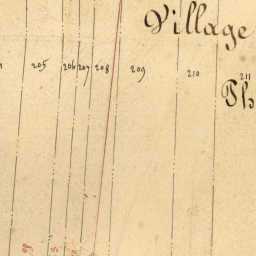 Village
205 206 207 208 209 210 211
Th